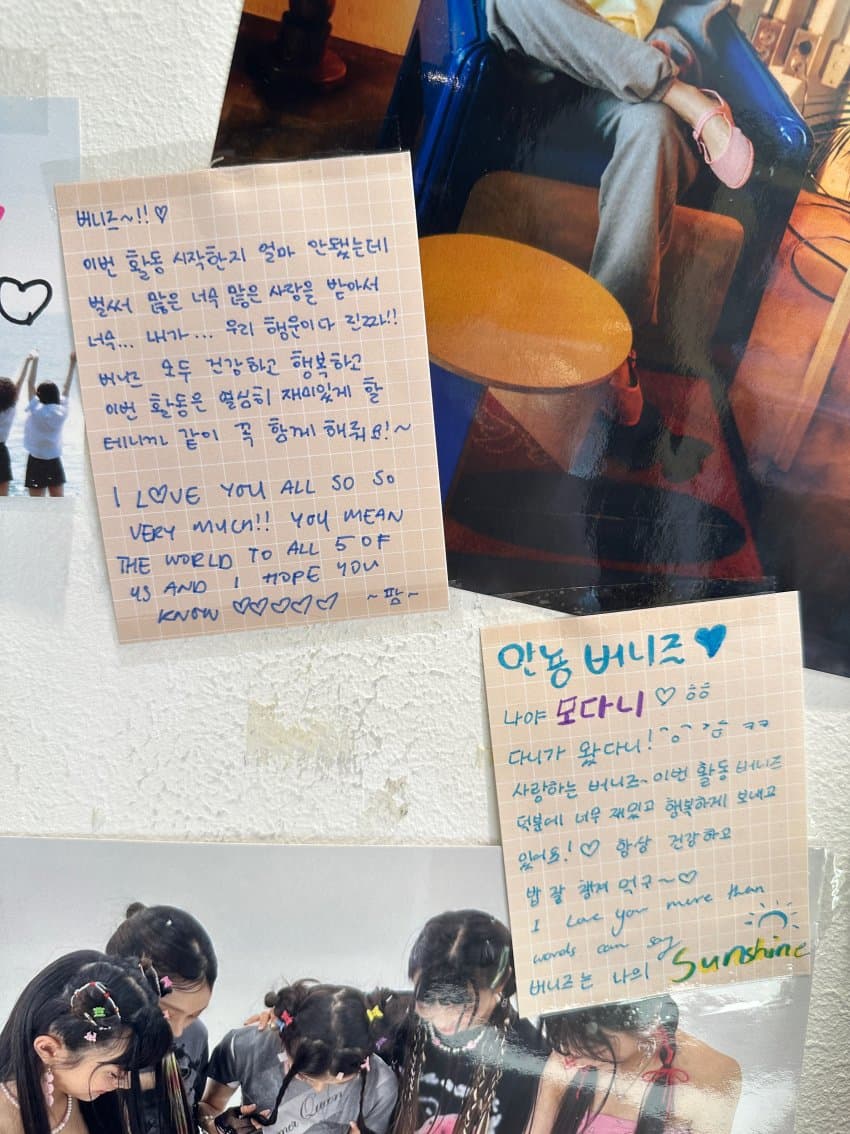 버니즈~!!♡
이번 활동 시작한지 얼마 안됐는데
벌써 많은 너무 많은 사랑을 받아서
너무... 내가... 우리 행운이다 진짜!!
버니즈 모두 건강하고 행복하고
이번 활동은 열심히 재미있게 할
테니까 같이 꼭 함께 해줘요!~
I L♡VE YOU ALL SO SO
VERY MUCH!! YOU MEAN
THE WORLD TO ALL 5 OF
US AND I HOPE YOU
KNOW ♡♡♡♡♡ ~팜~
안뇽 버니즈 ♥
나야 모다니 ♡ ㅎㅎ
다니가 왔다니! ㅋㅋ
사랑하는 버니즈~ 이번 활동 버니즈
덕분에 너무 재밌고 행복하게 보내고
있어요! ♡ 항상 건강하고
밥 잘 챙겨 먹구~♡
I love you more than
words can say
버니즈는 나의 Sunshine
Queen